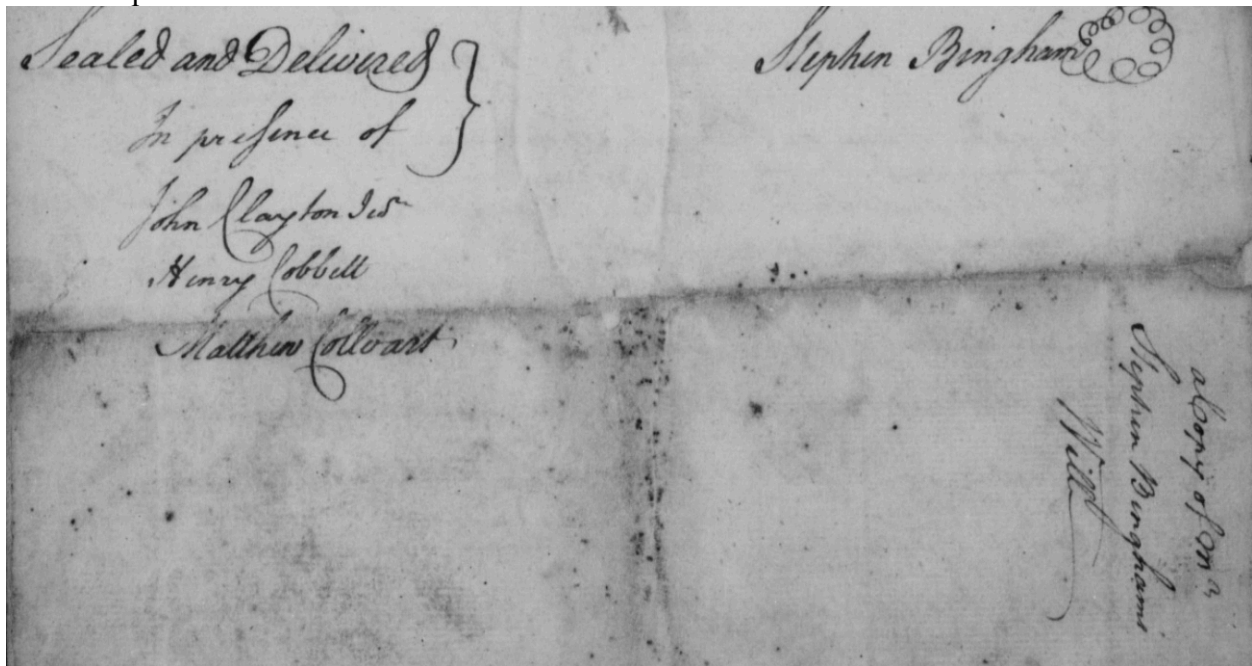 Sealed and Delivered
In presence of
John Clayton Junr
Henry Cobbett
Matthew Collvart
Stephen Bingham
a Copy of Mr
Stephen Binghams
Will